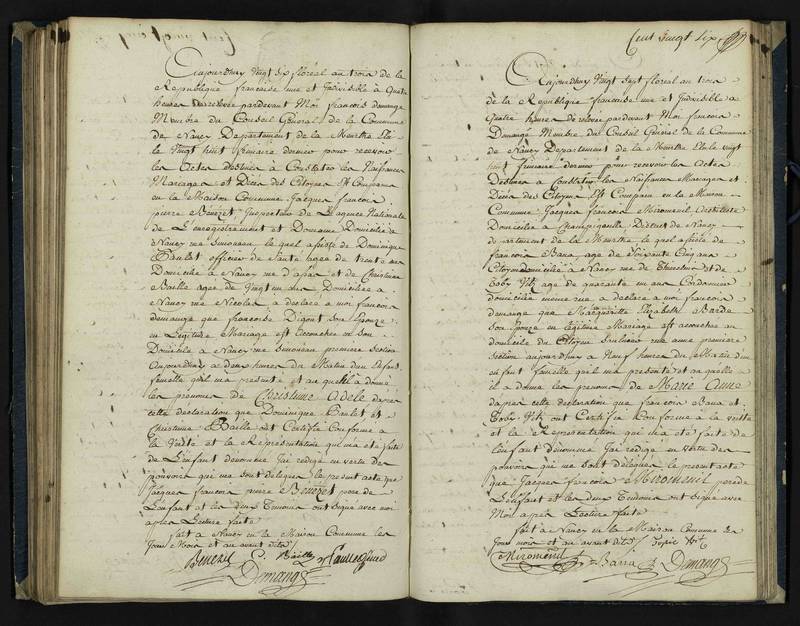 Aujourdhuy Vingt Six floréal an trois de la
République francaise une et Indivisible à quatre
heures de relevée pardevant Moi francois domange
Membre du Conseil Général de la Commune
de Nancy Département de la Meurthe Elu
le Vingt huit frimaire dernier pour recevoir
les Actes destinés à Constater les Naissances
Mariages et Décès des Citoyens Est Comparu
en la Maison Commune Jacques francois
pierre Benezet Inspecteur de L'agence Nationale
de L'enregistrement et Domaine Domicilié à
Nancy rue Simoneau lequel assisté de Dominique
officier de Santé agée de trente ans
Domicilié à Nancy rue et de Christine
Baille agée de Vingt un ans Domiciliée à
Nancy rue Nicolas a déclaré à moi francois
domange que francoise Digout Son Epouse
en Légitime Mariage est accouchée en Son
Domicile à Nancy rue Simoneau première Section
aujourdhuy a deux heures du Matin d'un Enfant
femelle qu'il m'a présenté et auquel il a donné
les prénoms de Christine Adele d'après
cette déclaration que Dominique et
Christine Baille ont Certifié Conforme à
la Vérité et la Représentation qui m'a été faite
de L'enfant dénommé J'ai rédigé en vertu des
pouvoirs qui me sont délégués le présent acte que
Jacques francois pierre Benezet pere de
L'enfant et les deux Témoins ont Signé avec moi
après Lecture faite
fait à Nancy en la Maison Commune les
Jour Mois et an avant dits
Benezet C. Baille
Domange
Cent Vingt Six
Aujourdhuy Vingt Sept floréal an trois
de la République francaise une et Indivisible a
quatre heures de relevée pardevant Moi francois
Domange Membre du Conseil Général de la Commune
de Nancy Département de la Meurthe Elu le vingt
huit frimaire dernier pour recevoir les Actes
Destinés à Constater les Naissances Mariages et
Décès des Citoyens Est Comparu en la Maison
Commune Jacques francois Miromenil
Domicilié à Champigneulle District de Nancy
département de la Meurthe lequel assisté de
francois Bana age de Soixante Cinq ans
Citoyen domicilié à Nancy rue de et de
age de quarante un ans Cordonnier
domicilié même rue a déclaré a moi francois
domange que Margueritte Elizabeth Barde
Son Epouse en légitime Mariage est accouchée au
domicile du Citoyen rue première
Section aujourdhuy a Neuf heures du Matin d'un
enfant femelle qu'il m'a présenté et auquelle
il a donné les prénoms de Marie Anne
d'après cette déclaration que francois Bana et
ont Certifié Conforme à la vérité
et la Représentation qui m'a été faite de
L'enfant dénommé J'ai rédigé en vertu des
pouvoirs qui me sont délégués le présent acte
que Jacques francois Miromenil pere de
L'enfant et les deux Témoins ont Signé avec
Moi après Lecture faite
fait à Nancy en la Maison Commune les
Jour mois et an avant dits
Miromenil Barra Domange